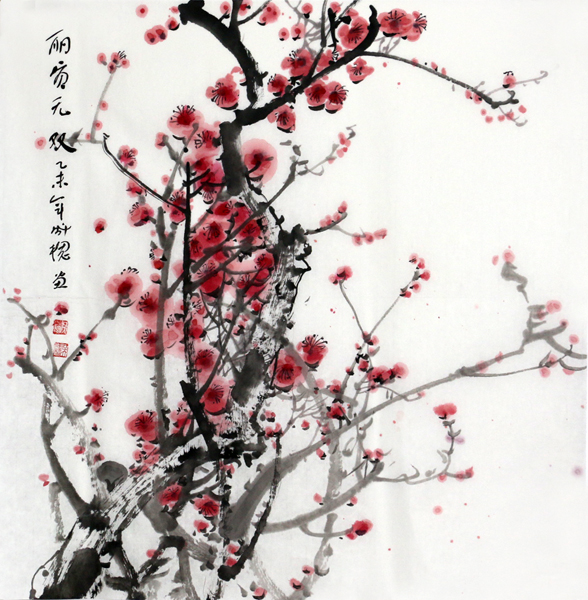 丽质无双乙未年画